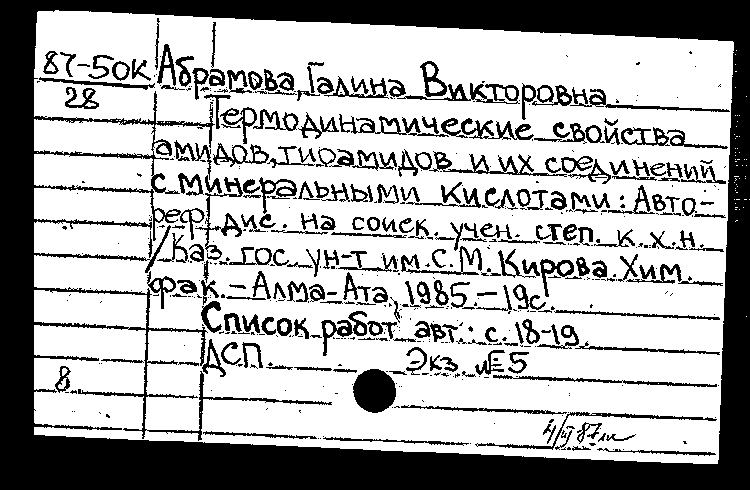 87-50К Абрамова, Галина Викторовна.
28
Термодинамические свойства
амидов, тиоамидов и их соединений
с минеральными кислотами: Авто-
реф. дис. на соиск. учен. степ. к.х.н.
/Каз. гос. ун-т им. С.М. Кирова. Хим.
фак. – Алма-Ата, 1985. – 19с.
Список работ авт.: с. 18-19.
ДСП. Экз. №5
8